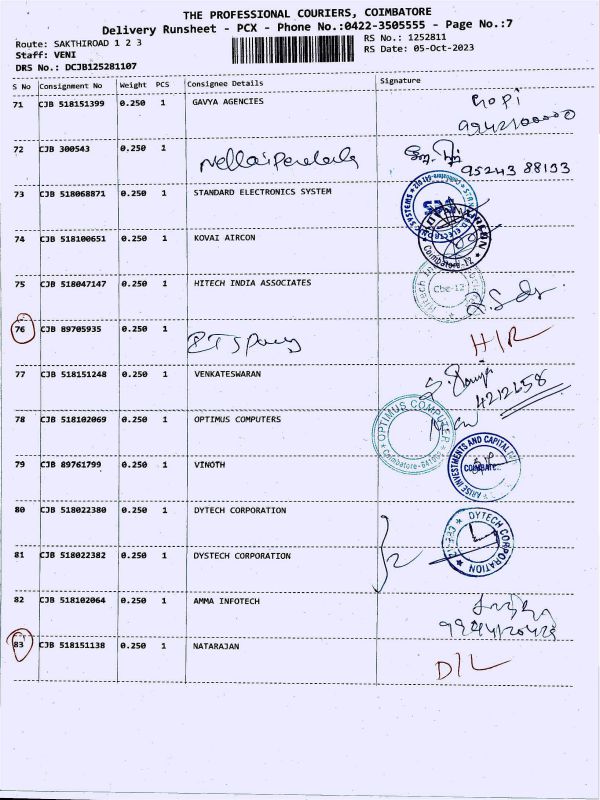 THE PROFESSIONAL COURIERS, COIMBATORE
Delivery Runsheet - PCX - Phone No.:0422-3505555 - Page No.:7
Route: SAKTHIROAD 1 2 3
RS No.: 1252811
Staff: VENI
RS Date: 05-Oct-2023
DRS No.: DCJB125281107
S No Consignment No Weight PCS Consignee Details Signature
71 CJB 518151399 0.250 1 GAVYA AGENCIES Gopi
72 CJB 300543 0.250 1
95243 88193
73 CJB 518068871 0.250 1 STANDARD ELECTRONICS SYSTEM
74 CJB 518100651 0.250 1 KOVAI AIRCON
Coimbatore-12
75 CJB 518047147 0.250 1 HITECH INDIA ASSOCIATES
Cbe-12
76 CJB 89705935 0.250 1
77 CJB 518151248 0.250 1 VENKATESWARAN
4212658
78 CJB 518102069 0.250 1 OPTIMUS COMPUTERS
OPTIMUS COMPUTER
79 CJB 89761799 0.250 1 VINOTH
ARISE INVESTMENTS AND CAPITAL
80 CJB 518022380 0.250 1 DYTECH CORPORATION
DYTECH CORPORATION
81 CJB 518022382 0.250 1 DYSTECH CORPORATION
82 CJB 518102064 0.250 1 AMMA INFOTECH
83 CJB 518151138 0.250 1 NATARAJAN D/L